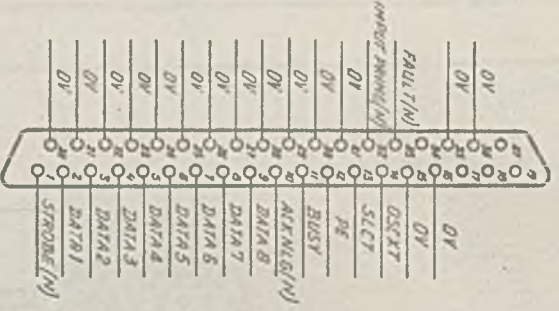 0V
0V
0V
0V
0V
0V
0V
0V
0V
0V
0V
0V
INPUT PRIME(N)
FAULT(N)
0V
0V
20
21
22
23
24
25
26
27
28
29
30
31
32
33
34
35
36
37
1
2
3
4
5
6
7
8
9
10
11
12
13
14
15
16
17
18
19
STROBE(N)
DATA1
DATA2
DATA3
DATA4
DATA5
DATA6
DATA7
DATA8
ACKNLG(N)
BUSY
PE
SLCT
OSCXT
0V
0V